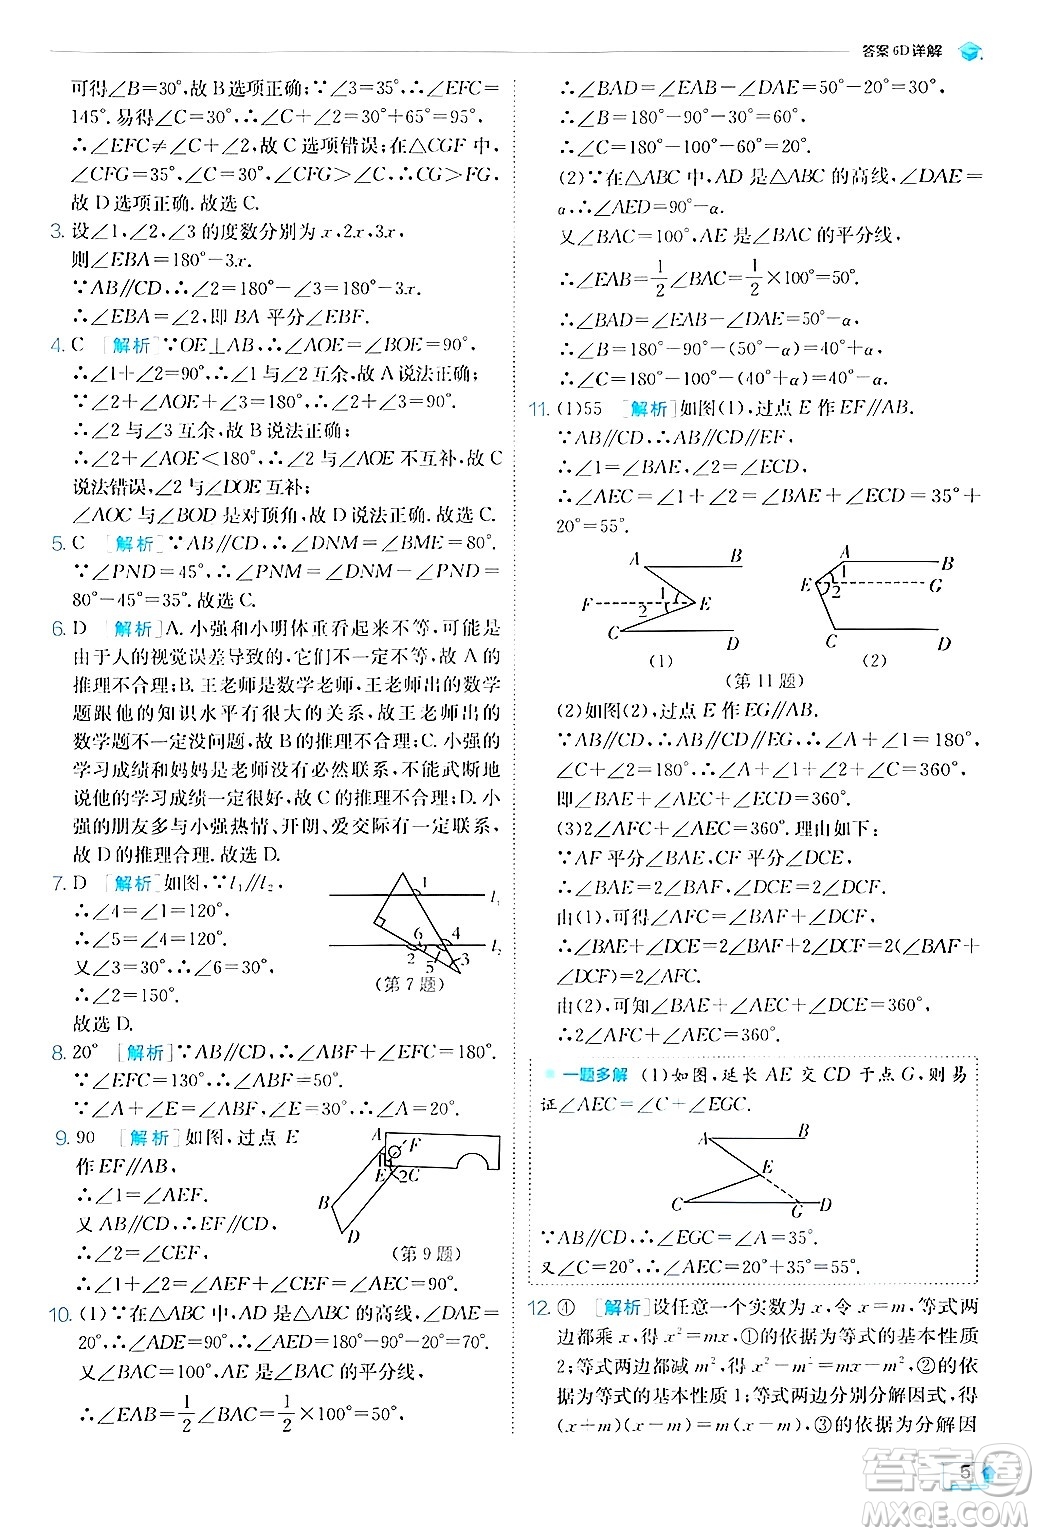 答案 6D 详解
可得∠B=30°,故 B 选项正确;∵∠3=35°,∴∠EFC=
145°.易得∠C=30°,∴∠C+∠2=30°+65°=95°,
∴∠EFC≠∠C+∠2,故 C 选项错误;在△CGF 中,
∠CFG=35°,∠C=30°,∠CFG>∠C,∴CG>FG,
故 D 选项正确.故选 C.
3. 设∠1,∠2,∠3 的度数分别为 x,2x,3x,
则∠EBA=180°-3x.
∵AB∥CD,∴∠2=180°-∠3=180°-3x,
∴∠EBA=∠2,即 BA 平分∠EBF.
4. C [解析]∵OE⊥AB,∴∠AOE=∠BOE=90°,
∴∠1+∠2=90°,∴∠1与∠2互余,故 A 说法正确;
∵∠2+∠AOE+∠3=180°,∴∠2+∠3=90°,
∴∠2与∠3互余,故 B 说法正确;
∴∠2+∠AOE<180°,∴∠2与∠AOE 不互补,故 C
说法错误,∠2与∠DOE 互补;
∠AOC 与∠BOD 是对顶角,故 D 说法正确.故选 C.
5. C [解析]∵AB∥CD,∴∠DNM=∠BME=80°.
∵∠PND=45°,∴∠PNM=∠DNM-∠PND=
80°-45°=35°.故选 C.
6. D [解析]A. 小强和小明体重看起来不等,可能是
由于人的视觉误差导致的,它们不一定不等,故 A 的
推理不合理;B. 王老师是数学老师,王老师出的数学
题跟他的知识水平有很大的关系,故王老师出的
数学题不一定没问题,故 B 的推理不合理;C. 小强的
学习成绩和妈妈是老师没有必然联系,不能武断地
说他的学习成绩一定很好,故 C 的推理不合理;D. 小
强的朋友多与小强热情、开朗、爱交际有一定联系,
故 D 的推理合理.故选 D.
7. D [解析]如图,∵l₁∥l₂,
∴∠4=∠1=120°,
∴∠5=∠4=120°.
又∠3=30°,
∴∠2=150°.
故选 D.
1
l₁
6
4
2
5
3
l₂
(第 7 题)
8. 20° [解析]∵AB∥CD,∴∠ABF+∠EFC=180°.
∵∠EFC=130°,∴∠ABF=50°.
∵∠A+∠E=∠ABF,∠E=30°,∴∠A=20°.
9. 90 [解析]如图,过点 E
作 EF∥AB,
∴∠1=∠AEF.
又 AB∥CD,∴EF∥CD,
∴∠2=∠CEF,
∴∠1+∠2=∠AEF+∠CEF=∠AEC=90°.
A
F
1
E
2
C
B
D
(第 9 题)
10. (1)∵在△ABC 中,AD 是△ABC 的高线,∠DAE=
20°,∴∠ADE=90°,∴∠AED=180°-90°-20°=70°.
又∠BAC=100°,AE 是∠BAC 的平分线,
∴∠EAB=1/2∠BAC=1/2×100°=50°,
∴∠BAD=∠EAB-∠DAE=50°-20°=30°,
∴∠B=180°-90°-30°=60°,
∴∠C=180°-100°-60°=20°.
(2)∵在△ABC 中,AD 是△ABC 的高线,∠DAE=
α,∴∠AED=90°-α.
又∠BAC=100°,AE 是∠BAC 的平分线,
∴∠EAB=1/2∠BAC=1/2×100°=50°,
∴∠BAD=∠EAB-∠DAE=50°-α,
∴∠B=180°-90°-(50°-α)=40°+α,
∴∠C=180°-100°-(40°+α)=40°-α.
11. (1)55 [解析]如图(1),过点 E 作 EF∥AB.
∵AB∥CD,∴AB∥CD∥EF,
∴∠1=∠BAE,∠2=∠ECD,
∴∠AEC=∠1+∠2=∠BAE+∠ECD=35°+
20°=55°.
A
B
F
1
2
E
C
D
(1)
A
B
E
1
2
G
C
D
(2)
(第 11 题)
(2)如图(2),过点 E 作 EG∥AB.
∵AB∥CD,∴AB∥CD∥EG,∴∠A+∠1=180°,
∠C+∠2=180°,∴∠A+∠1+∠2+∠C=360°,
即∠BAE+∠AEC+∠DCE=360°.
(3)2∠AFC+∠AEC=360°.理由如下:
∵AF 平分∠BAE,CF 平分∠DCE,
∴∠BAE=2∠BAF,∠DCE=2∠DCF.
由(1),可得∠AFC=∠BAF+∠DCF,
∴∠BAE+∠DCE=2∠BAF+2∠DCF=2(∠BAF+
∠DCF)=2∠AFC.
由(2),可知∠BAE+∠AEC+∠DCE=360°,
∴2∠AFC+∠AEC=360°.
一题多解 (1)如图,延长 AE 交 CD 于点 G,则易
证∠AEC=∠C+∠EGC.
A
B
E
C
G
D
∵AB∥CD,∴∠EGC=∠A=35°.
又∠C=20°,∴∠AEC=20°+35°=55°.
12. ① [解析]设任意一个实数为 x,令 x=m,等式两
边都乘 x,得 x²=mx,①的依据为等式的基本性质
2;等式两边都减 m²,得 x²-m²=mx-m²,②的依
据为等式的基本性质 1;等式两边分别分解因式,得
(x+m)(x-m)=m(x-m),③的依据为分解因
5
答案圈
MXQE.COM